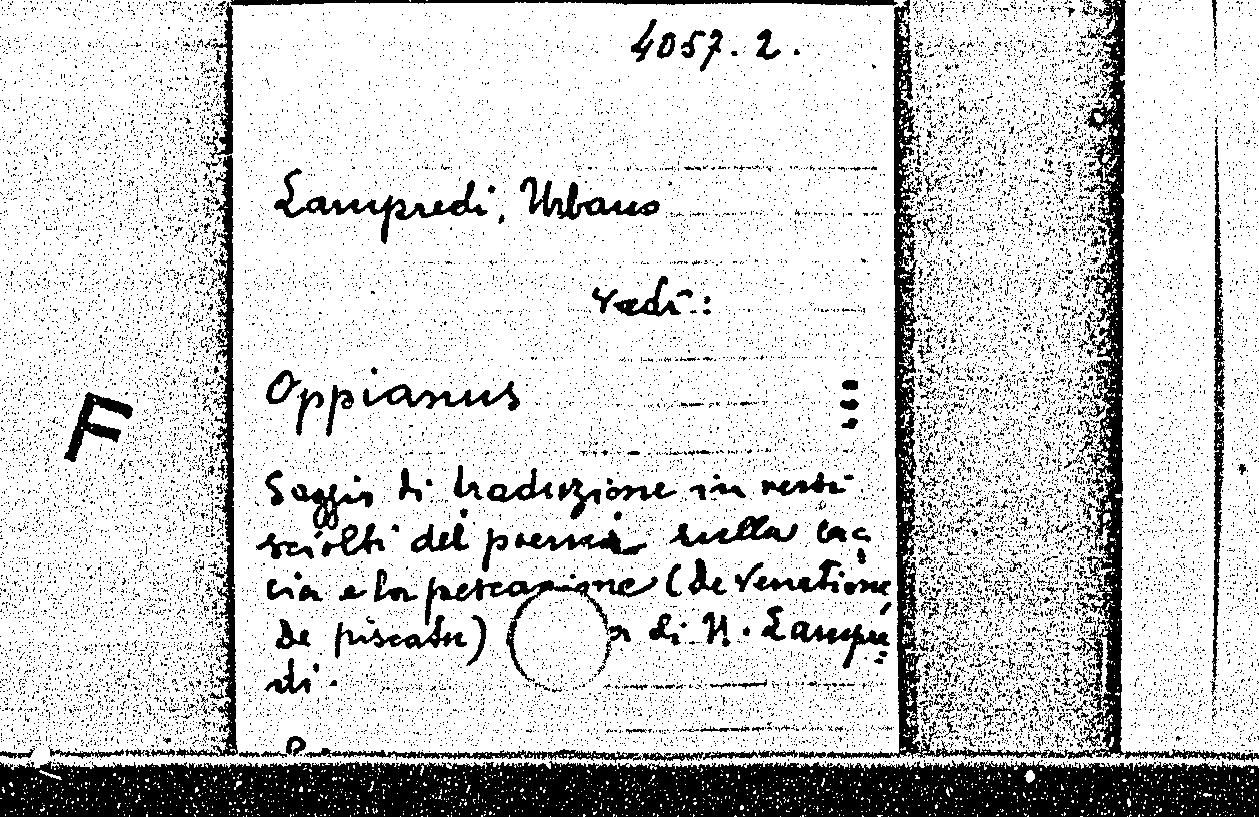 4057. 2.
Lampredi, Urbano
vedi:
Oppianus
F
Saggio di traduzione in versi
sciolti del poema sulla cac
cia e la (de Venatione,
De piscatu) di U. Lampre=
di.